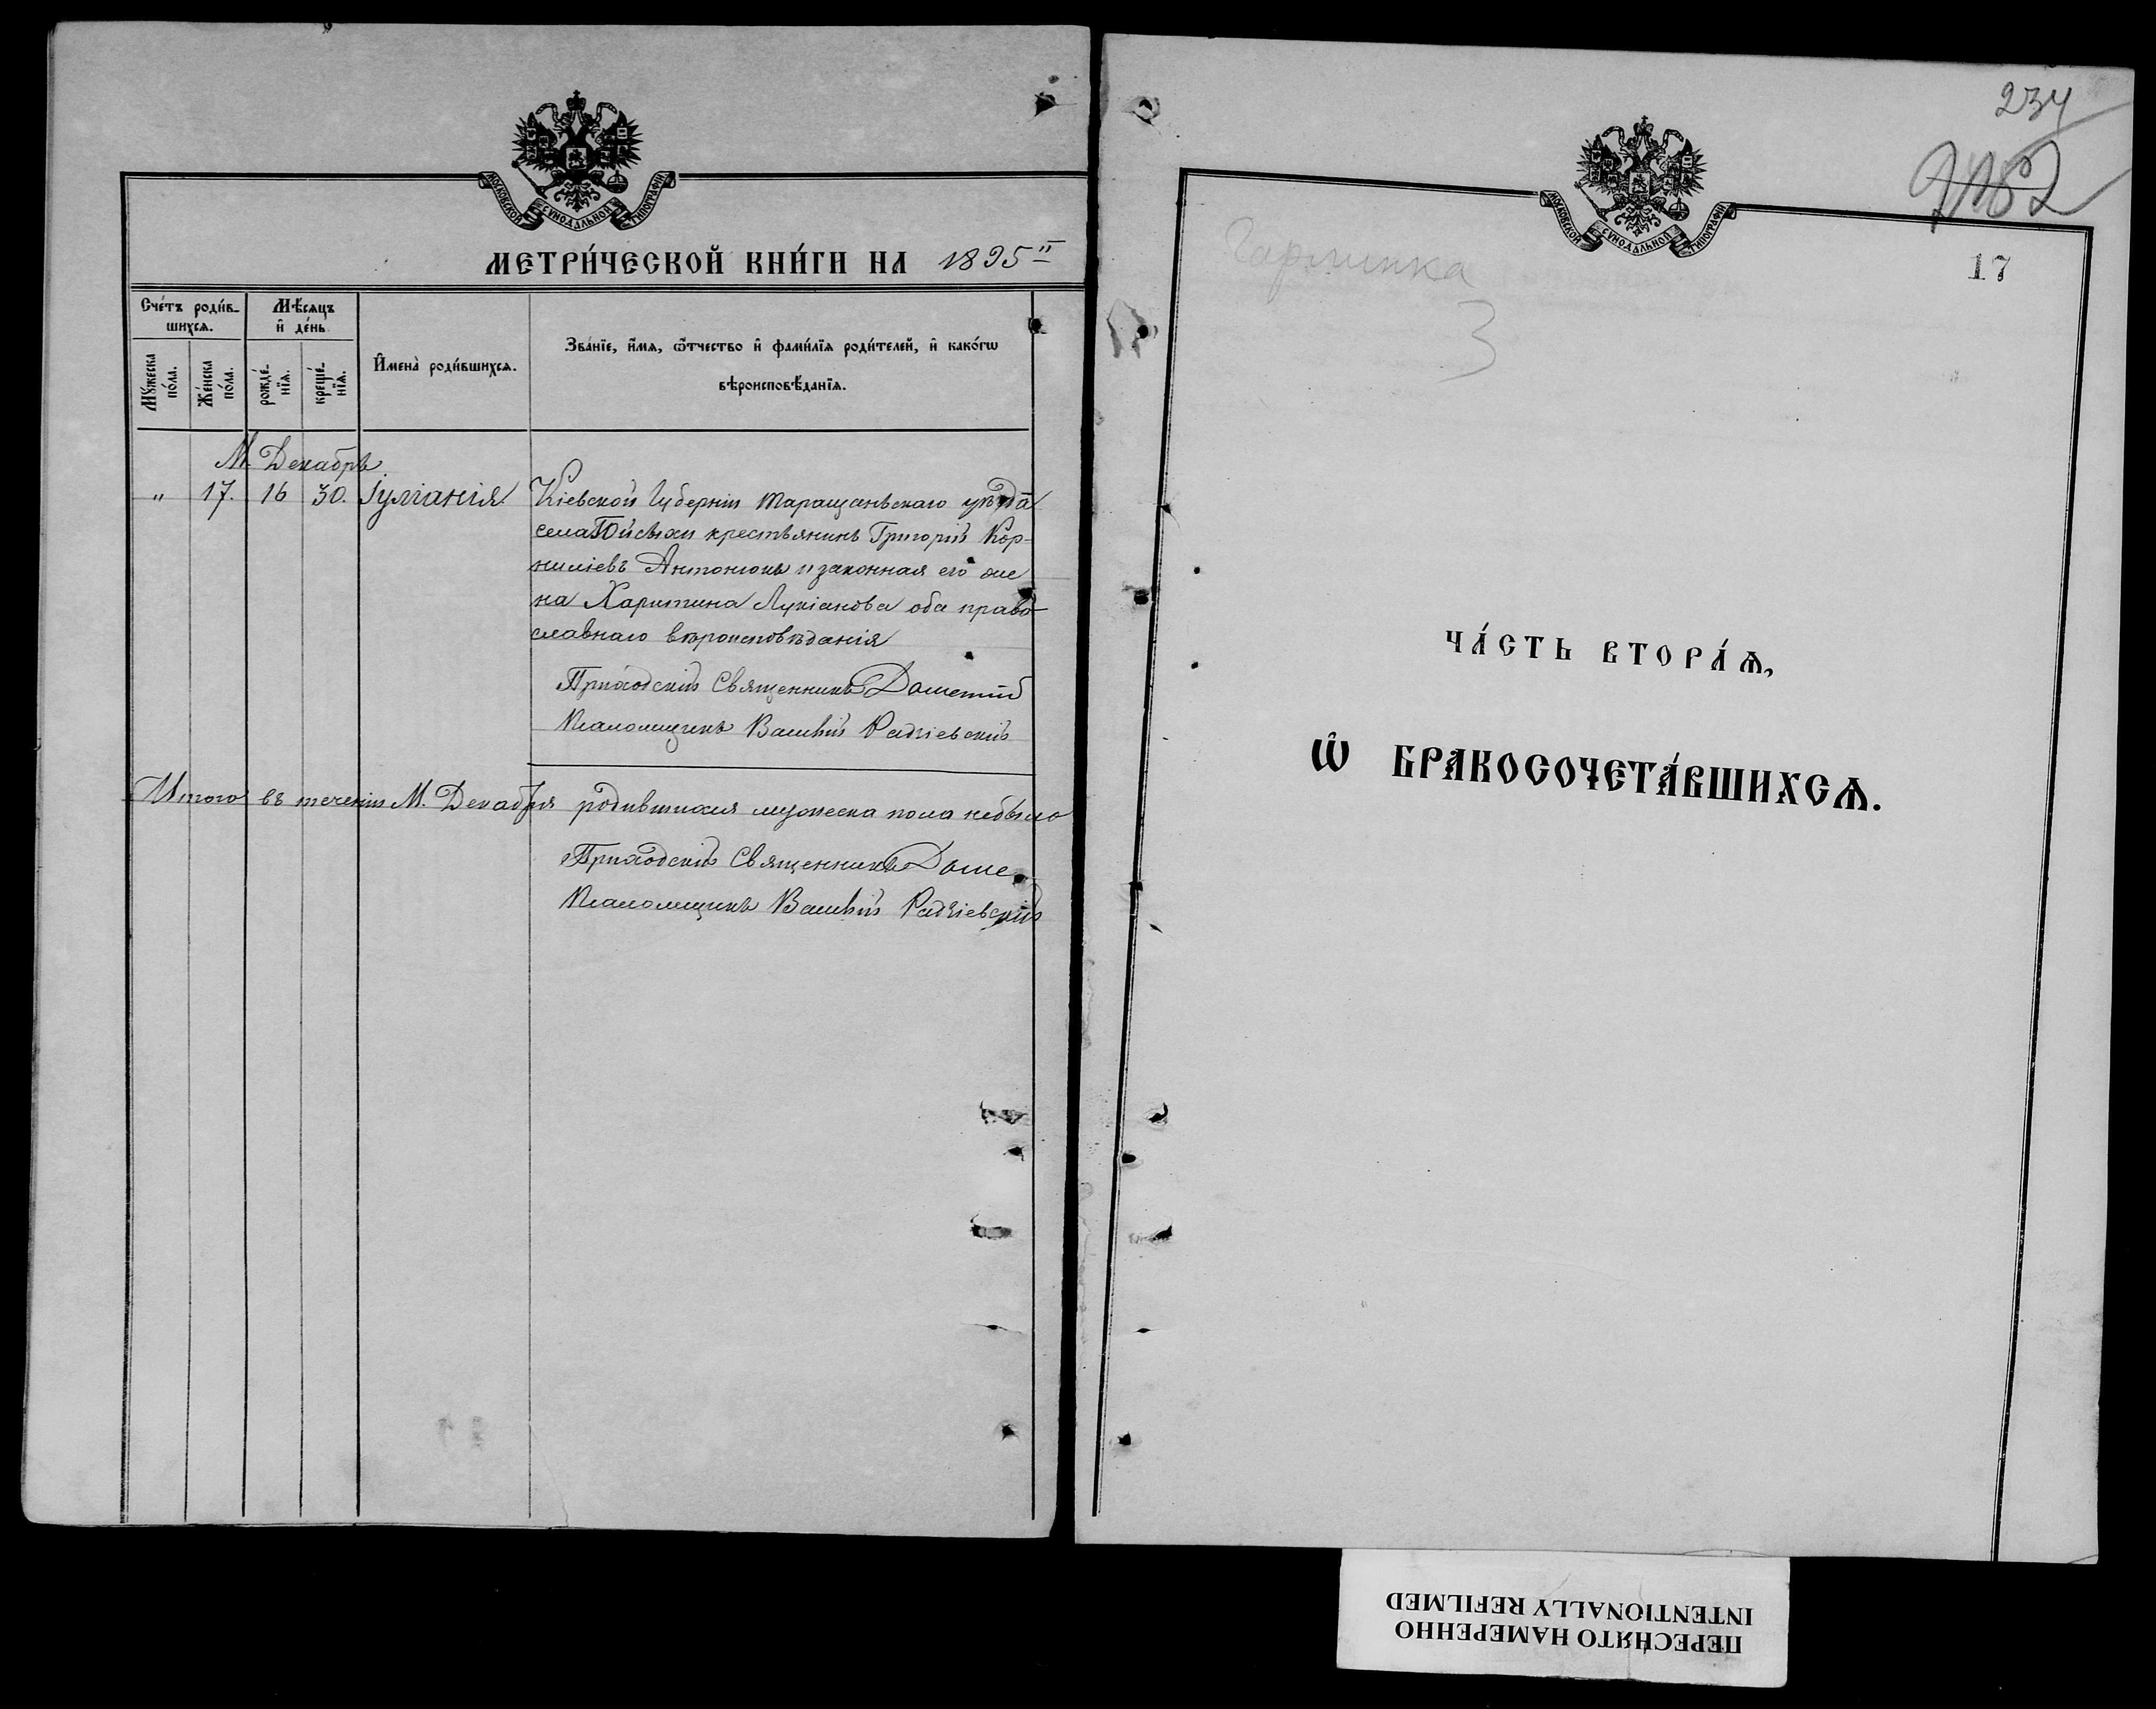 МОСКОВСКОЙ СѴНОДАЛЬНОЙ ТИПОГРАФІИ
МЕТРИ́ЧЕСКОЙ КНИ́ГИ НА 1895 й
Сче́тъ роди́в-
шихсѧ.
Мꙋ́жеска
по́ла.
Же́нска
по́ла.
Мѣ́сѧцъ
и҆ де́нь
рожде́-
нїѧ.
креще́-
нїѧ.
И҆мена̀ роди́вшихсѧ.
Зва́нїе, и҆́мѧ, ѻ҆́тчество и҆ фами́лїѧ роди́телей, и҆ како́гѡ
вѣроисповѣ́данїѧ.
М. Декабрь
" 17. 16 30. Іуліанія
Кіевской Губерніи Таращанскаго уѣзда
села крестьянинъ Григорій Кор-
ниліевъ Антонюкъ и законная его же
на Харитина Лукіанова оба право-
славнаго вѣроисповѣданія
Приходскій Священникъ
Псаломщикъ
Итого въ теченіи М. Декабря родившихся мужеска пола небыло
Приходскій Священникъ
Псаломщикъ
234
17
МОСКОВСКОЙ СѴНОДАЛЬНОЙ ТИПОГРАФІИ
3
ЧА́СТЬ ВТОРА́Ѧ,
Ѡ҆ БРАКОСОЧЕТА́ВШИХСѦ.
ПЕРЕСНЯТО НАМЕРЕННО
INTENTIONALLY REFILMED